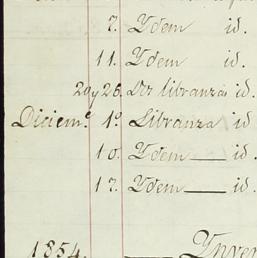 7. Ydem id.
11. Ydem id.
20 y 26. Dos libranzas id
Diciem.e 1º Libranza id
10. Ydem — id.
17. Ydem — id.
1854.